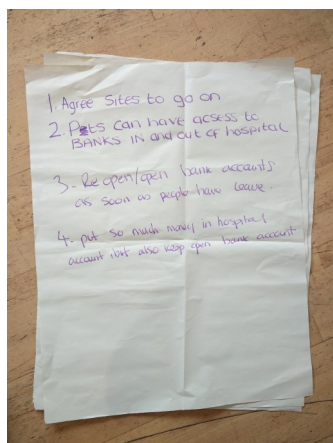 1. Agree Sites to go on
2. Pets can have acsess to
BANKS IN and out of hospital
3- Re open/open bank accounts
as soon as people have leave.
4- put so much money in hospital
account, but also keep open bank account